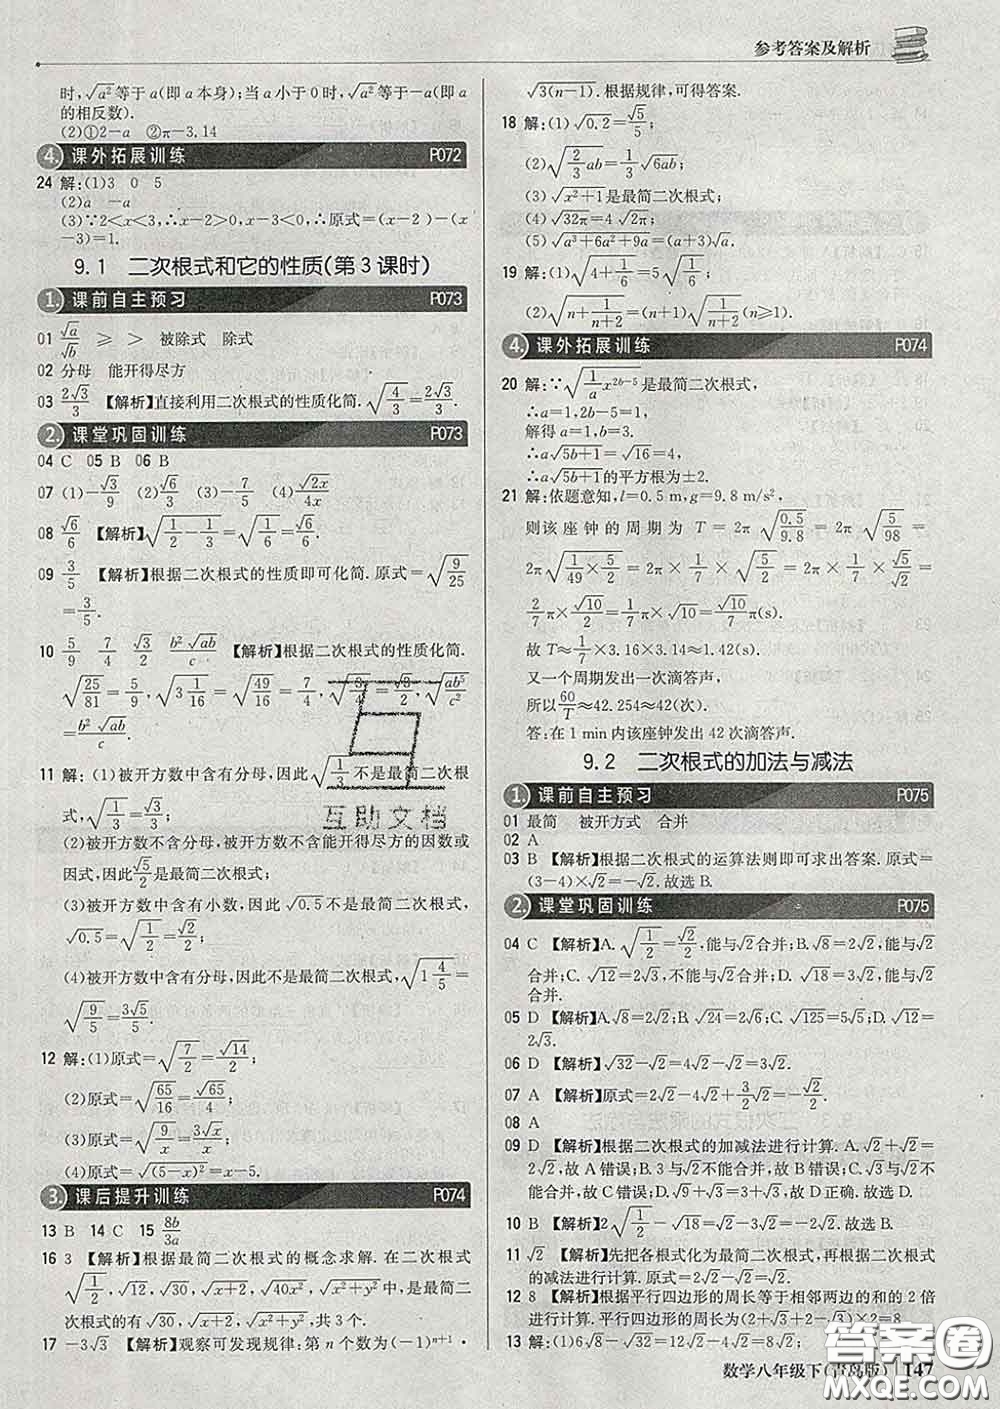 参考答案及解析
时,√a²等于a(即a本身);当a小于0时,√a²等于-a(即a
的相反数).
(2)①2-a ②π-3.14
4. 课外拓展训练 P072
24 解:(1)3 0 5
(2)a -a
(3)∵2<x<3,∴x-2>0,x-3<0,∴原式=(x-2)-(x
-3)=1.
9.1 二次根式和它的性质(第3课时)
1. 课前自主预习 P073
01 √a/√b ≥ > 被除式 除式
02 分母 能开得尽方
03 2√3/3 【解析】直接利用二次根式的性质化简.√(4/3)=2√3/3.
2. 课堂巩固训练 P073
04 C 05 B 06 B
07 (1)-√3/9 (2)√6/3 (3)-7/5 (4)√2x/4x
08 √6/6 【解析】√(1/2-1/3)=√(1/6)=√6/6.
09 3/5 【解析】根据二次根式的性质即可化简.原式=√(9/25)
=3/5.
10 5/9 7/4 √3/2 b²√ab/c 【解析】根据二次根式的性质化简.
√(25/81)=5/9,√(3 1/16)=√(49/16)=7/4,√(3/4)=√3/2,√(ab⁵/c²)
=b²√ab/c.
11 解:(1)被开方数中含有分母,因此√(1/3)不是最简二次根
式,√(1/3)=√3/3;
(2)被开方数不含分母,被开方数不含能开得尽方的因数或
因式,因此√5/2是最简二次根式;
(3)被开方数中含有小数,因此√0.5不是最简二次根式,
√0.5=√(1/2)=√2/2;
(4)被开方数中含有分母,因此不是最简二次根式,√(1 4/5)
=√(9/5)=3√5/5.
12 解:(1)原式=√(7/2)=√14/2;
(2)原式=√(65/16)=√65/4;
(3)原式=√(9/x)=3√x/x;
(4)原式=√(5-x)²=x-5.
3. 课后提升训练 P074
13 B 14 C 15 8b/3a
16 3 【解析】根据最简二次根式的概念求解.在二次根式
√(1/2),√12,√30,√x+2,√40x²,√x²+y²中,是最简二
次根式的有√30,√x+2,√x²+y²,共3个.
17 -3√3 【解析】观察可发现规律:第n个数为(-1)ⁿ⁺¹·
√3(n-1).根据规律,可得答案.
18 解:(1)√0.2=√5/5;
(2)√(2/3 ab)=1/3√6ab;
(3)√x²+1是最简二次根式;
(4)√32π=4√2π;
(5)√a³+6a²+9a=(a+3)√a.
19 解:(1)√(4+1/6)=5√(1/6);
(2)√(n+1/(n+2))=(n+1)√(1/(n+2))(n≥1).
4. 课外拓展训练 P074
20 解:∵√(1/a x²ᵇ⁻⁵)是最简二次根式,
∴a=1,2b-5=1,
解得a=1,b=3.
∴a√5b+1=√16=4,
∴a√5b+1的平方根为±2.
21 解:依题意知,l=0.5 m,g=9.8 m/s²,
则该座钟的周期为T=2π√(0.5/9.8)=2π√(5/98)=
2π√(1/49×5/2)=2π×1/7×√(5/2)=2π×1/7×√5/√2=
2/7π×√10/2=1/7π×√10=√10/7π(s).
故T≈1/7×3.16×3.14≈1.42(s).
又一个周期发出一次滴答声,
所以60/T≈42.254≈42(次).
答:在1 min内该座钟发出42次滴答声.
9.2 二次根式的加法与减法
1. 课前自主预习 P075
01 最简 被开方式 合并
02 A
03 B 【解析】根据二次根式的运算法则即可求出答案.原式=
(3-4)×√2=-√2.故选B.
2. 课堂巩固训练 P075
04 C 【解析】A.√(1/2)=√2/2,能与√2合并;B.√8=2√2,能与√2
合并;C.√12=2√3,不能与√2合并;D.√18=3√2,能与√2
合并.
05 D 【解析】A.√8=2√2;B.√24=2√6;C.√125=5√5;D.√12=
2√3.
06 D 【解析】√32-√2=4√2-√2=3√2.
07 A 【解析】原式=2√2-4√2+3/2√2=-√2/2.
08 A
09 D 【解析】根据二次根式的加减法进行计算.A.√2+√2=
2√2,故A错误;B.
√3+√3=2√3,故D正确.故选D.
10 B 【解析】2√(1/2)-√18=√2-3√2=-2√2.故选B.
11 √2 【解析】先把各根式化为最简二次根式,再根据二次根式
的减法进行计算.原式=2√2-√2=√2.
12 8 【解析】根据平行四边形的周长等于相邻两边的和的2倍
进行计算.平行四边形的周长为(2+√3+2-√3)×2=8.
13 解:(1)6√8-√32=12√2-4√2=8√2;
数学八年级下(青岛版) 147
互助文档
答案圈
MXQE.COM